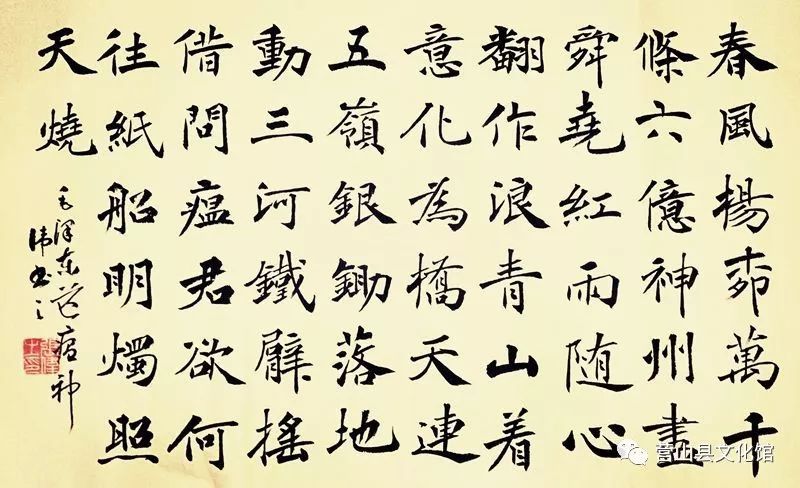 春風楊柳萬千
條六億神州盡
舜堯紅雨随心
翻作浪青山着
意化為橋天連
五嶺銀鋤落地
動三河鐵臂搖
借問瘟君欲何
往紙船明燭照
天燒
毛泽东送瘟神
书之
营山县文化馆